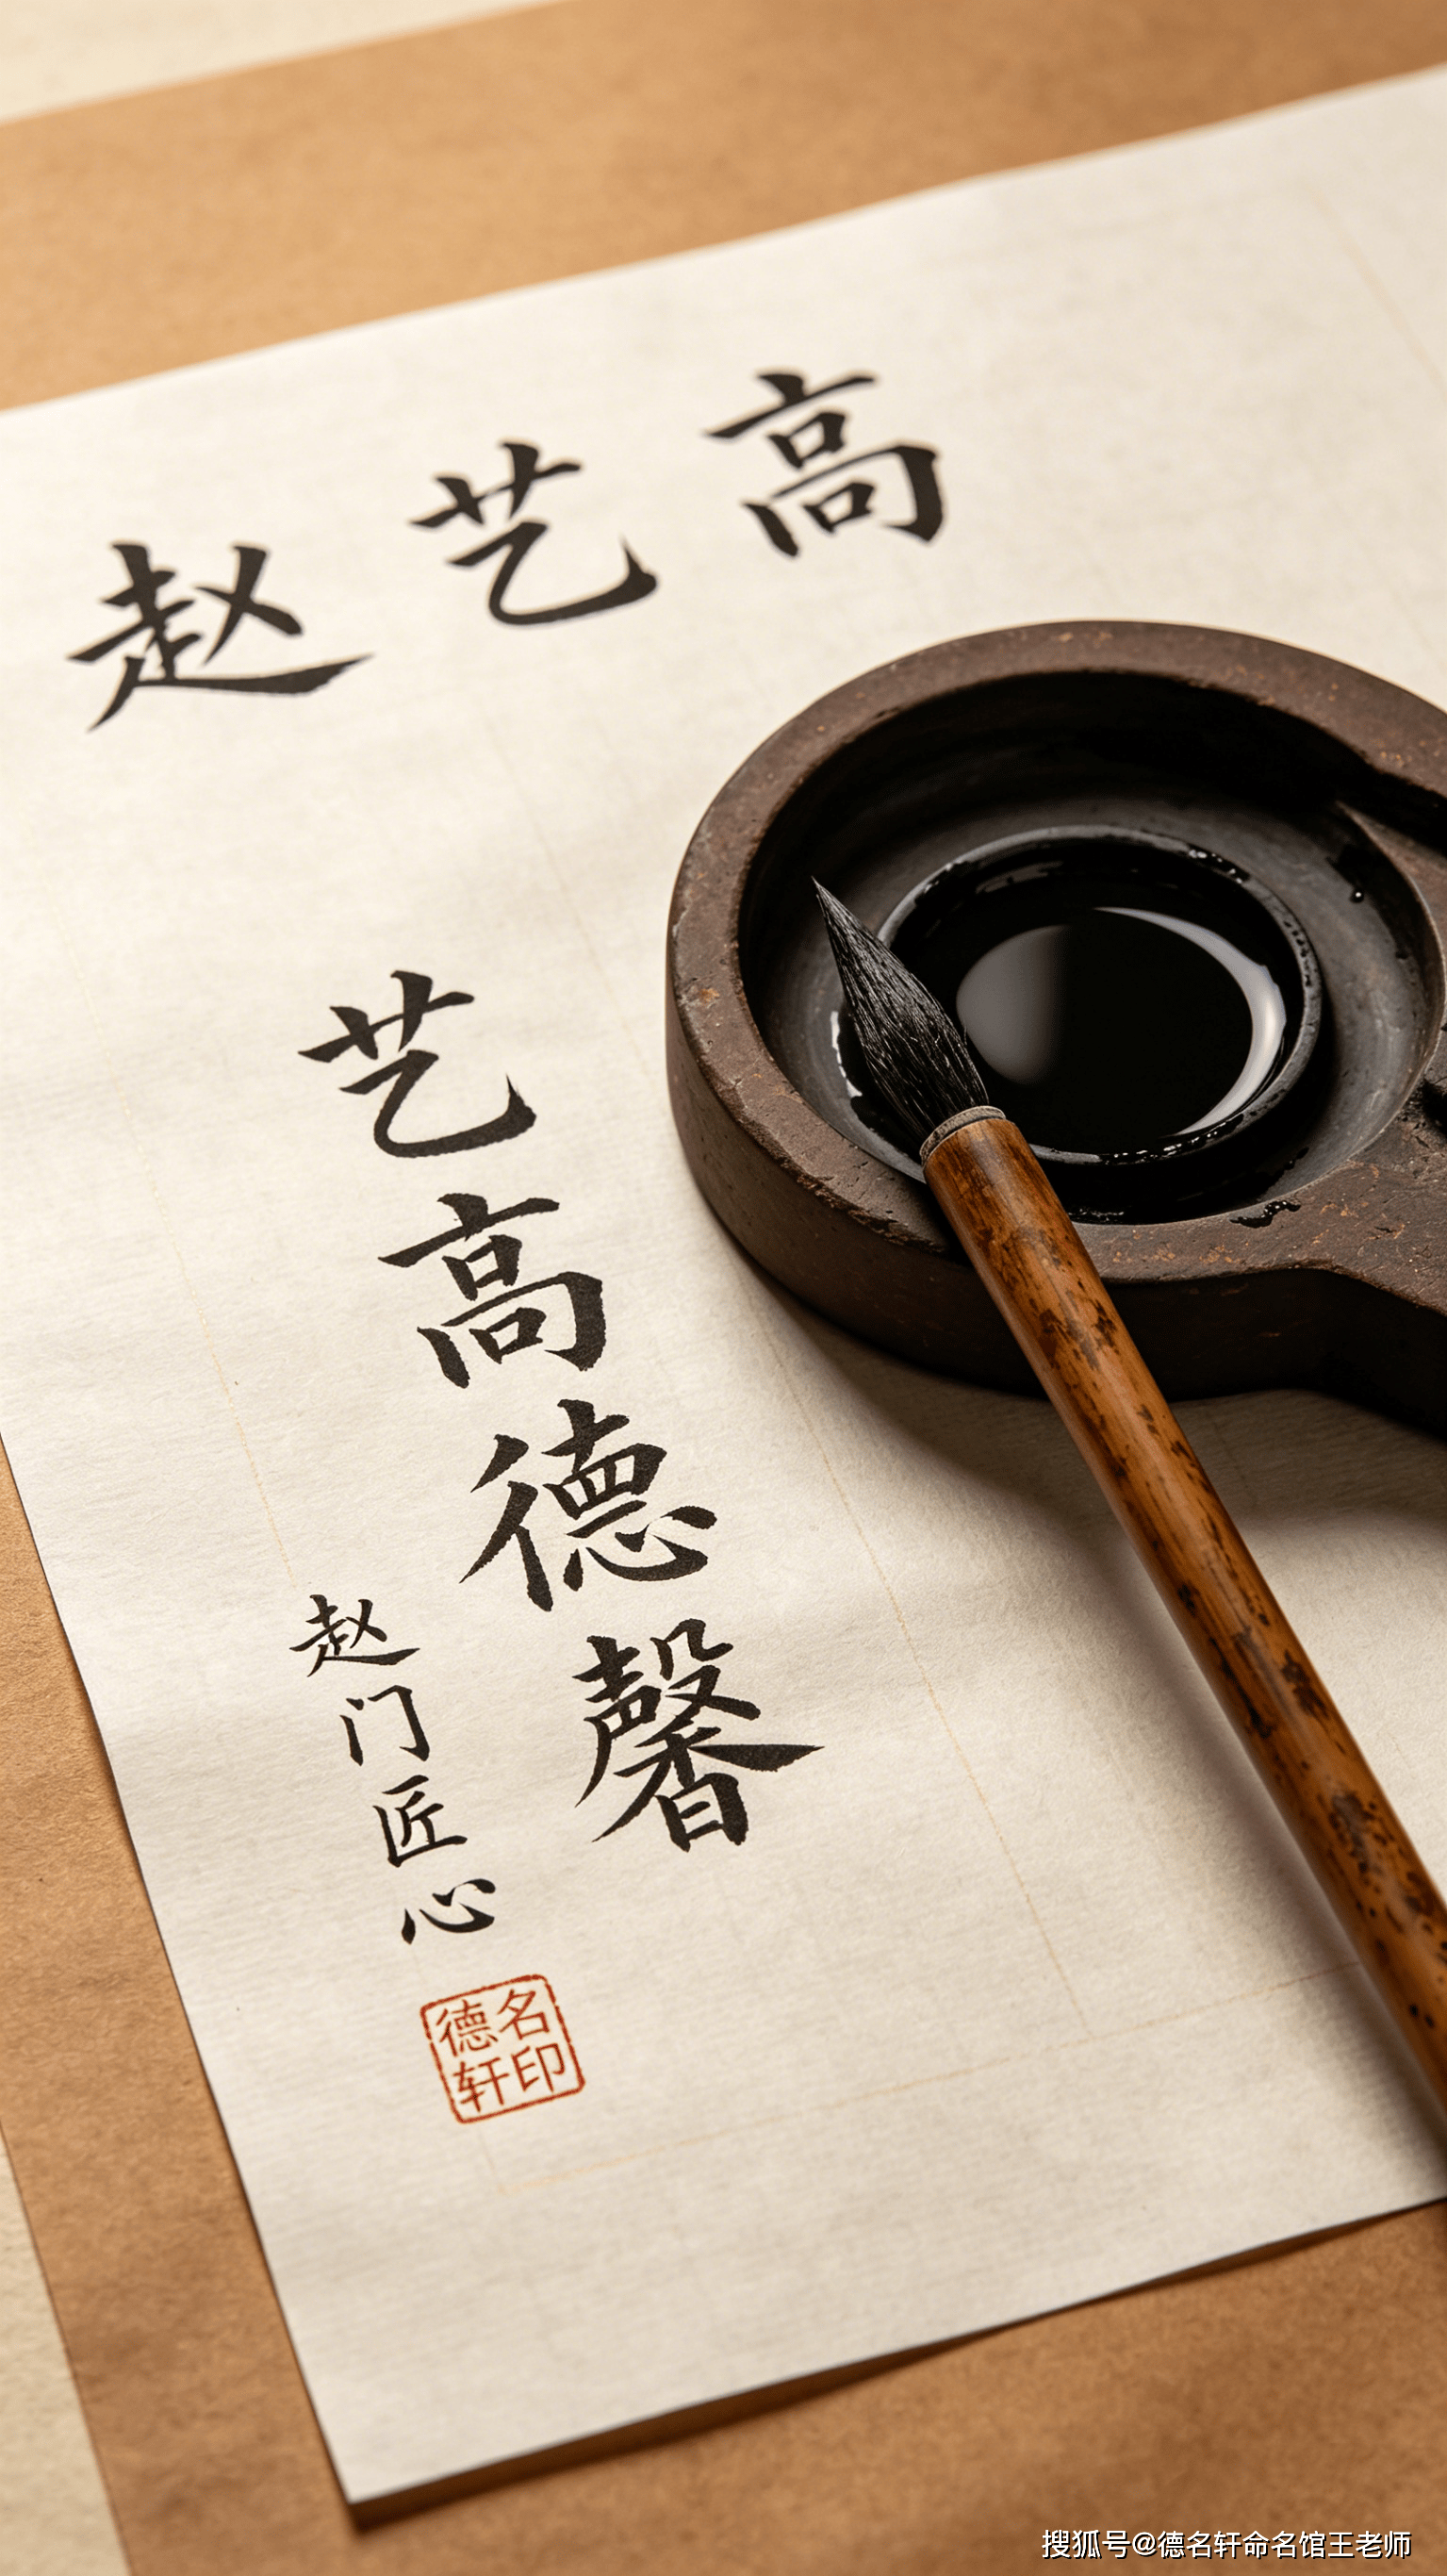 赵艺高
艺高德馨
赵门匠心
德名
轩印
搜狐号@德名轩命名馆王老师